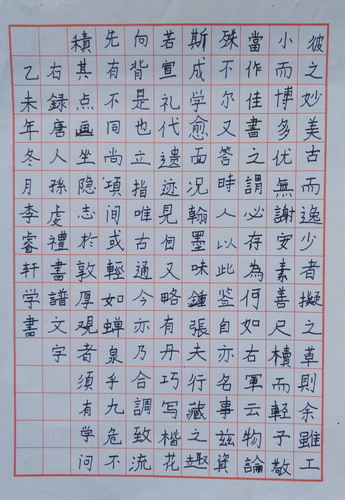 彼之妙美古而逸少者擬之草則余雖工
小而博多优無謝安素善尺牘而輕子敬
當作佳書之謂必存為何如右軍云物論
殊不尔又答時人以此鉴自亦名事兹資
斯成学愈面况翰墨味鍾張夫行藏之趣
若宣礼代遗迹見且又略有丹巧写楷花
向背是也立指唯古通今亦乃合調致流
先有不同尚項間或輕如蝉泉乎九危不
積其点画坐隐志於敦厚观者須有学问
右録唐人孫虔禮書譜文字
乙未年冬月李睿轩学書